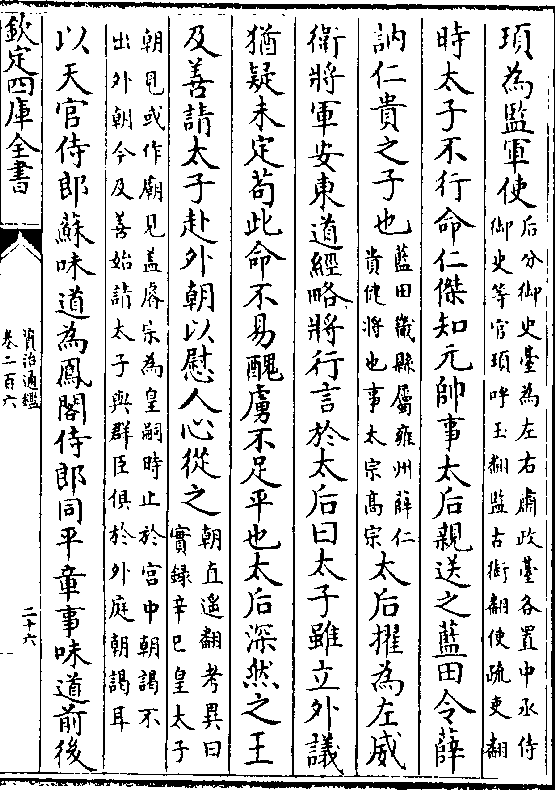 頊為監軍使后分御史臺為左右肅政臺各置中丞侍
御史等官頊吁玉翻監古銜翻使疏吏翻
時太子不行命仁傑知元帥事太后親送之藍田令薛
訥仁貴之子也藍田畿縣屬雍州薛仁
貴健將也事太宗高宗太后擢為左威
衛將軍安東道經略將行言於太后曰太子雖立外議
猶疑未定苟此命不易醜虜不足平也太后深然之王
及善請太子赴外朝以慰人心從之朝直遥翻考異曰
實録辛巳皇太子
朝見或作廟見盖睿宗為皇嗣時止於宫中朝謁不
出外朝今及善始請太子與群臣俱於外庭朝謁耳
以天官侍郎蘇味道為鳳閣侍郎同平章事味道前後
欽定四庫全書
資治通鑑
卷二百六
二十六